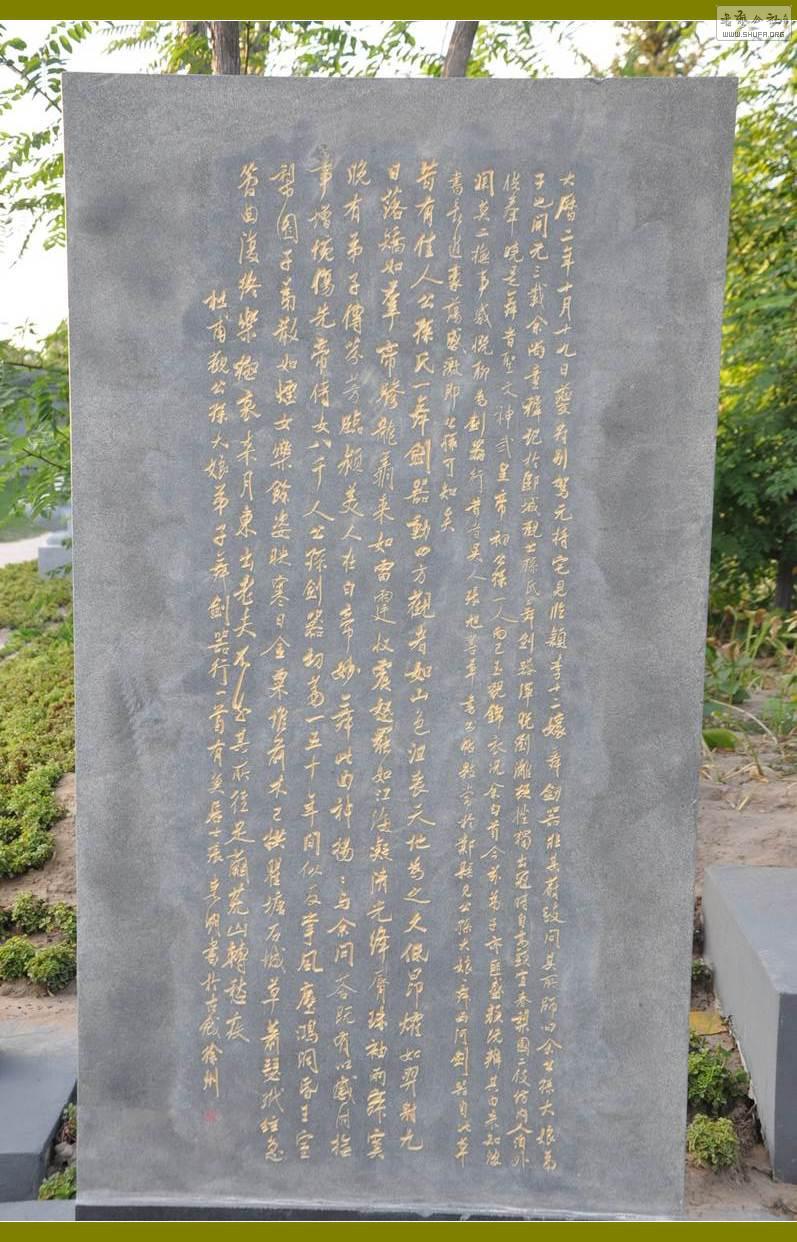 大曆二年十月十九日夔府別駕元持宅見臨潁李十二娘舞劍器壯其蔚跂問其所師曰余公孫大娘弟
子也開元三載余尚童穉記於郾城觀公孫氏舞劍器渾脫瀏灕頓挫獨出冠時自高頭宜春梨園二伎坊內人洎外
供奉曉是舞者聖文神武皇帝初公孫一人而已玉貌錦衣況余白首今茲弟子亦匪盛顏既辨其由來知波
瀾莫二撫事感慨聊為劍器行昔者吳人張旭善草書書帖數常於鄴縣見公孫大娘舞西河劍器自此草
書長進豪蕩感激即公孫可知矣
昔有佳人公孫氏一舞劍器動四方觀者如山色沮喪天地為之久低昂㸌如羿射九
日落矯如羣帝驂龍翔來如雷霆收震怒罷如江海凝清光絳脣珠袖兩寂寞
晚有弟子傳芬芳臨潁美人在白帝妙舞此曲神揚揚與余問答既有以感時撫
事增惋傷先帝侍女八千人公孫劍器初第一五十年間似反掌風塵澒洞昏王室
梨園子弟散如煙女樂餘姿映寒日金粟堆前木已拱瞿塘石城草蕭瑟玳絃急
管曲復終樂極哀來月東出老夫不知其所往足繭荒山轉愁疾
杜甫觀公孫大娘弟子舞劍器行一首有 書於古彭徐州
WWW.SHUFA.ORG